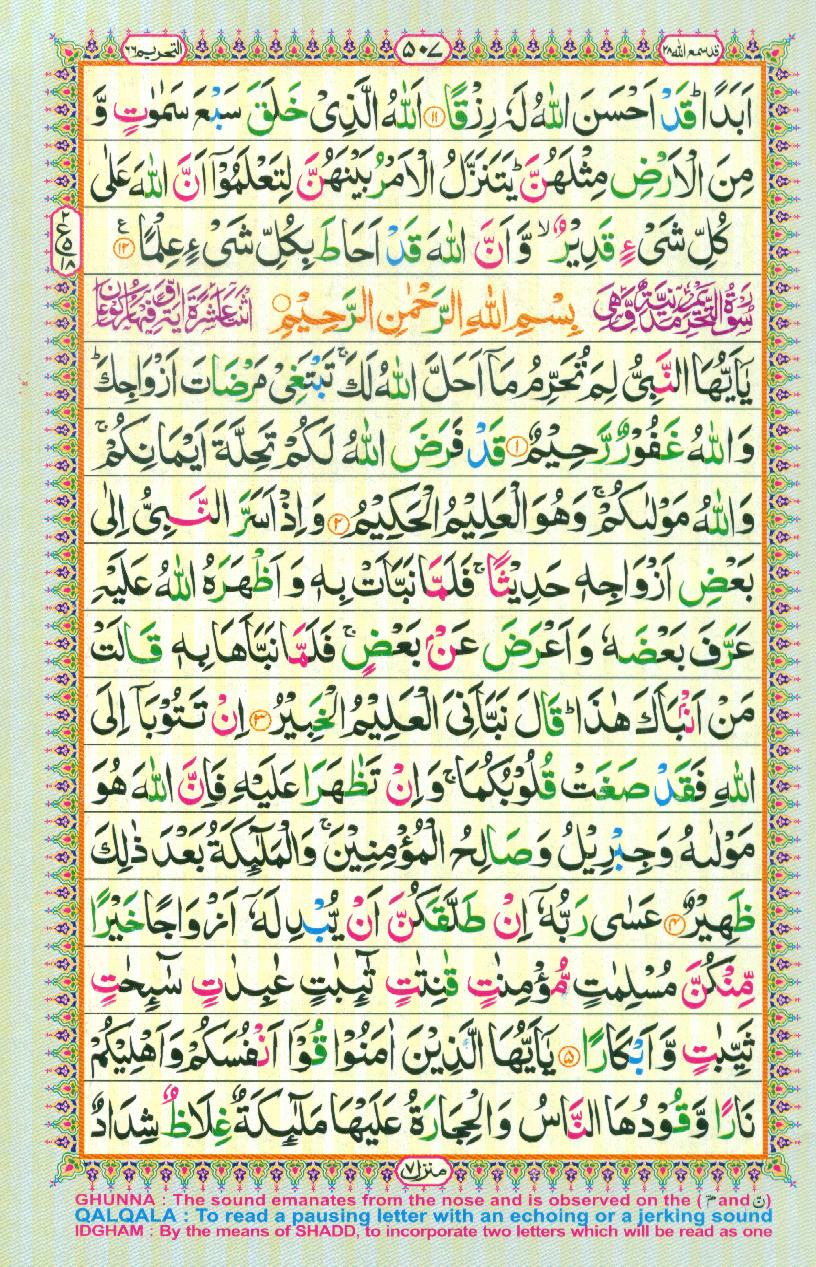 قد سمع الله ٢٨ ٥٠٧ التحريم ٦٦
اَبَدًا ؕ قَدْ اَحْسَنَ اللّٰهُ لَهٗ رِزْقًا ﴿۱۱﴾ اَللّٰهُ الَّذِىْ خَلَقَ سَبْعَ سَمٰوٰتٍ وَّ
مِنَ الْاَرْضِ مِثْلَهُنَّ ؕ يَتَنَزَّلُ الْاَمْرُ بَيْنَهُنَّ لِتَعْلَمُوْۤا اَنَّ اللّٰهَ عَلٰى
كُلِّ شَىْءٍ قَدِيْرٌ ۙ وَّ اَنَّ اللّٰهَ قَدْ اَحَاطَ بِكُلِّ شَىْءٍ عِلْمًا ﴿۱۲﴾ ع
٢ ع ٥ ١٨
سُوْرَةُ التَّحْرِيْمِ مَدَنِيَّةٌ وَّهِىَ بِسْمِ اللّٰهِ الرَّحْمٰنِ الرَّحِيْمِ اثْنَتَا عَشْرَةَ اٰيَةً وَّفِيْهَا رُكُوْعَانِ
يٰۤاَيُّهَا النَّبِىُّ لِمَ تُحَرِّمُ مَاۤ اَحَلَّ اللّٰهُ لَكَ ۚ تَبْتَغِىْ مَرْضَاتَ اَزْوَاجِكَ ؕ
وَاللّٰهُ غَفُوْرٌ رَّحِيْمٌ ﴿۱﴾ قَدْ فَرَضَ اللّٰهُ لَكُمْ تَحِلَّةَ اَيْمَانِكُمْ ۚ
وَاللّٰهُ مَوْلٰىكُمْ ۚ وَهُوَ الْعَلِيْمُ الْحَكِيْمُ ﴿۲﴾ وَ اِذْ اَسَرَّ النَّبِىُّ اِلٰى
بَعْضِ اَزْوَاجِهٖ حَدِيْثًا ۚ فَلَمَّا نَبَّاَتْ بِهٖ وَ اَظْهَرَهُ اللّٰهُ عَلَيْهِ
عَرَّفَ بَعْضَهٗ وَ اَعْرَضَ عَنْۢ بَعْضٍ ۚ فَلَمَّا نَبَّاَهَا بِهٖ قَالَتْ
مَنْ اَنْۢبَاَكَ هٰذَا ؕ قَالَ نَبَّاَنِىَ الْعَلِيْمُ الْخَبِيْرُ ﴿۳﴾ اِنْ تَتُوْبَاۤ اِلَى
اللّٰهِ فَقَدْ صَغَتْ قُلُوْبُكُمَا ۚ وَ اِنْ تَظٰهَرَا عَلَيْهِ فَاِنَّ اللّٰهَ هُوَ
مَوْلٰىهُ وَجِبْرِيْلُ وَصَالِحُ الْمُؤْمِنِيْنَ ۚ وَالْمَلٰٓئِكَةُ بَعْدَ ذٰلِكَ
ظَهِيْرٌ ﴿۴﴾ عَسٰى رَبُّهٗۤ اِنْ طَلَّقَكُنَّ اَنْ يُّبْدِلَهٗۤ اَزْوَاجًا خَيْرًا
مِّنْكُنَّ مُسْلِمٰتٍ مُّؤْمِنٰتٍ قٰنِتٰتٍ تٰٓئِبٰتٍ عٰبِدٰتٍ سٰٓئِحٰتٍ
ثَيِّبٰتٍ وَّ اَبْكَارًا ﴿۵﴾ يٰۤاَيُّهَا الَّذِيْنَ اٰمَنُوْا قُوْۤا اَنْفُسَكُمْ وَاَهْلِيْكُمْ
نَارًا وَّقُوْدُهَا النَّاسُ وَالْحِجَارَةُ عَلَيْهَا مَلٰٓئِكَةٌ غِلَاظٌ شِدَادٌ
منزل ٧
GHUNNA : The sound emanates from the nose and is observed on the ( مّ and نّ )
QALQALA : To read a pausing letter with an echoing or a jerking sound
IDGHAM : By the means of SHADD, to incorporate two letters which will be read as one